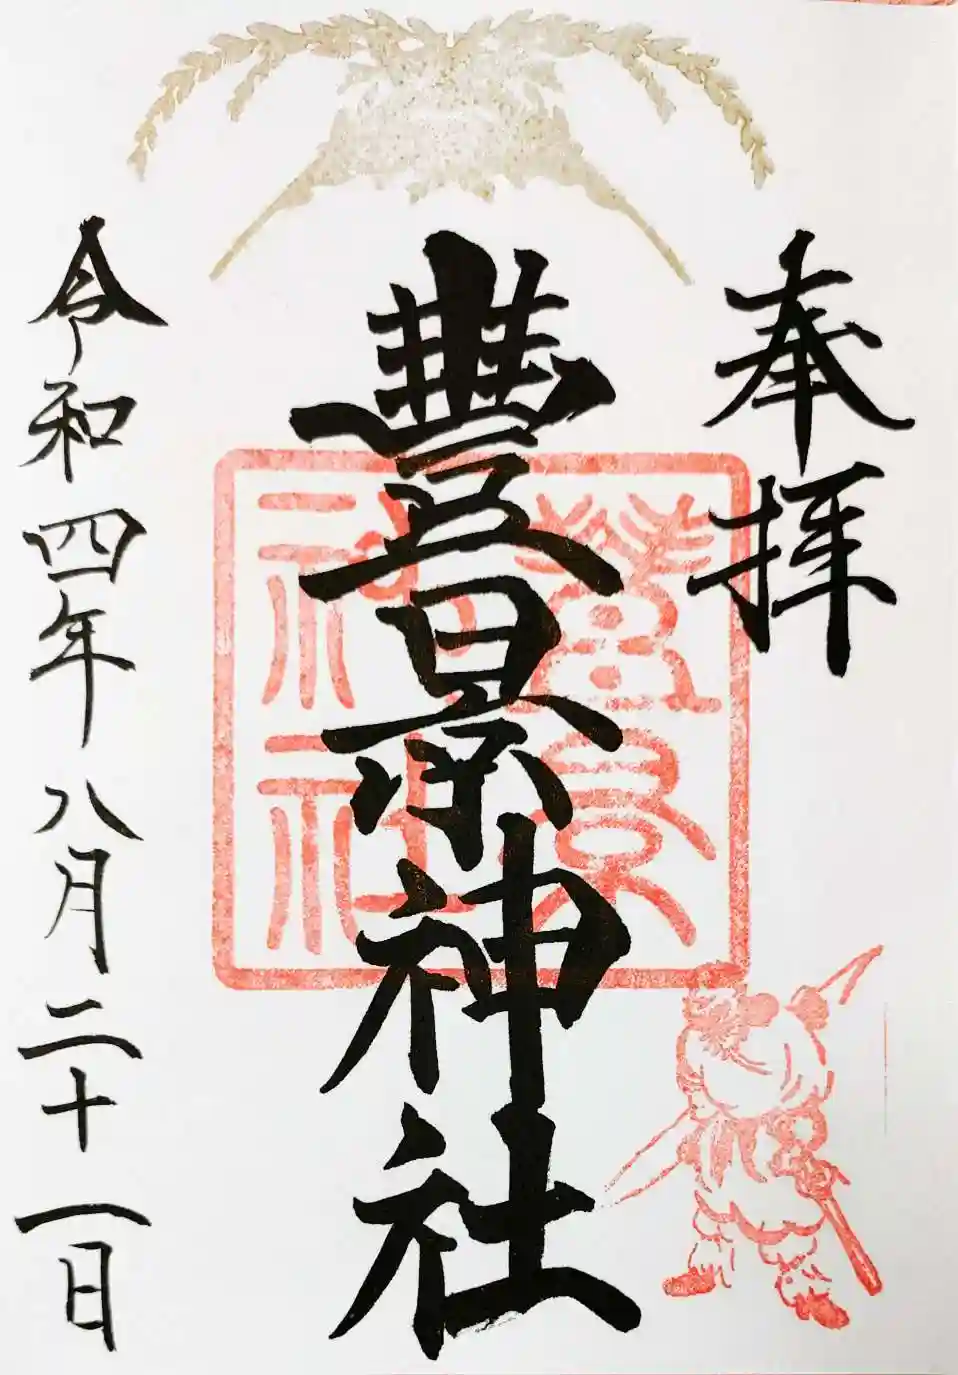 奉拝
豊景神社
豊景神社
令和四年八月二十一日